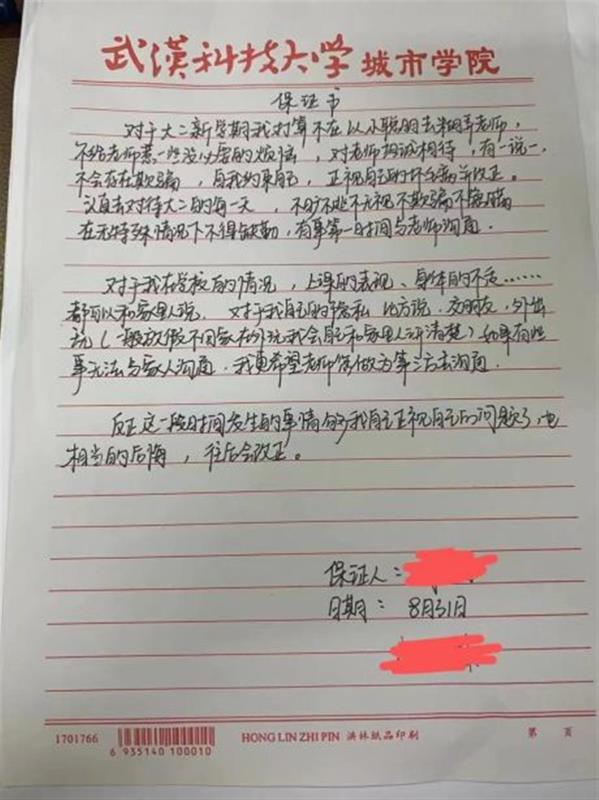 武汉科技大学城市学院
保证书
对于大二新学期我打算不在以小聪明去糊弄老师,
不给老师惹一些没必要的烦恼,对老师坦诚相待,有一说一,
不会存在欺骗,自我约束自己,正视自己的坏毛病并改正。
认真去对待大二的每一天,不旷不逃不无视不欺骗不隐瞒
在无特殊情况下不得缺勤,有事第一时间与老师沟通.
对于我在学校的情况,上课的表现、身体的不适……
都可以和家里人说,对于我自己的隐私 比方说,交朋友,外出
玩(一般放假不回家在外玩我会自己和家里人讲清楚)如果有些
事无法与家人沟通.我更希望老师你做为第三方去沟通.
反正这一段时间发生的事情够我自己正视自己的问题了,也
相当的后悔,往后会改正。
保证人:
日期: 8月31日
1701766
6 935140 100010
HONG LIN ZHI PIN 洪林纸品印刷
第 页